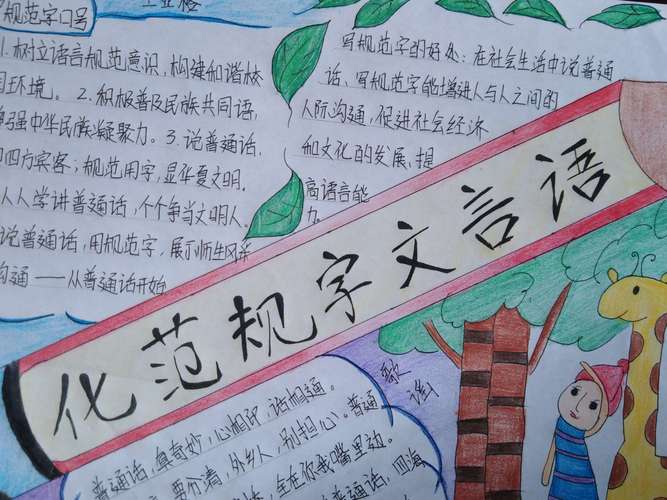 规范字口号
1.树立语言规范意识,构建和谐校
园环境。2.积极普及民族共同语,
增强中华民族凝聚力。3.说普通话,
四方宾客;规范用字,显华夏文明。
人人学讲普通话,个个争当文明人。
说普通话,用规范字,展示师生风采
沟通——从普通话开始
写规范字的好处:在社会生活中说普通
话、写规范字能增进人与人之间的
人际沟通,促进社会经济
和文化的发展、提
高语言能
力
语言文字规范化
歌谣
普通话,真奇妙,心相印,话相通。
要分清,外乡人,别担心。普通
全在你我嘴里边。
普通话,四海